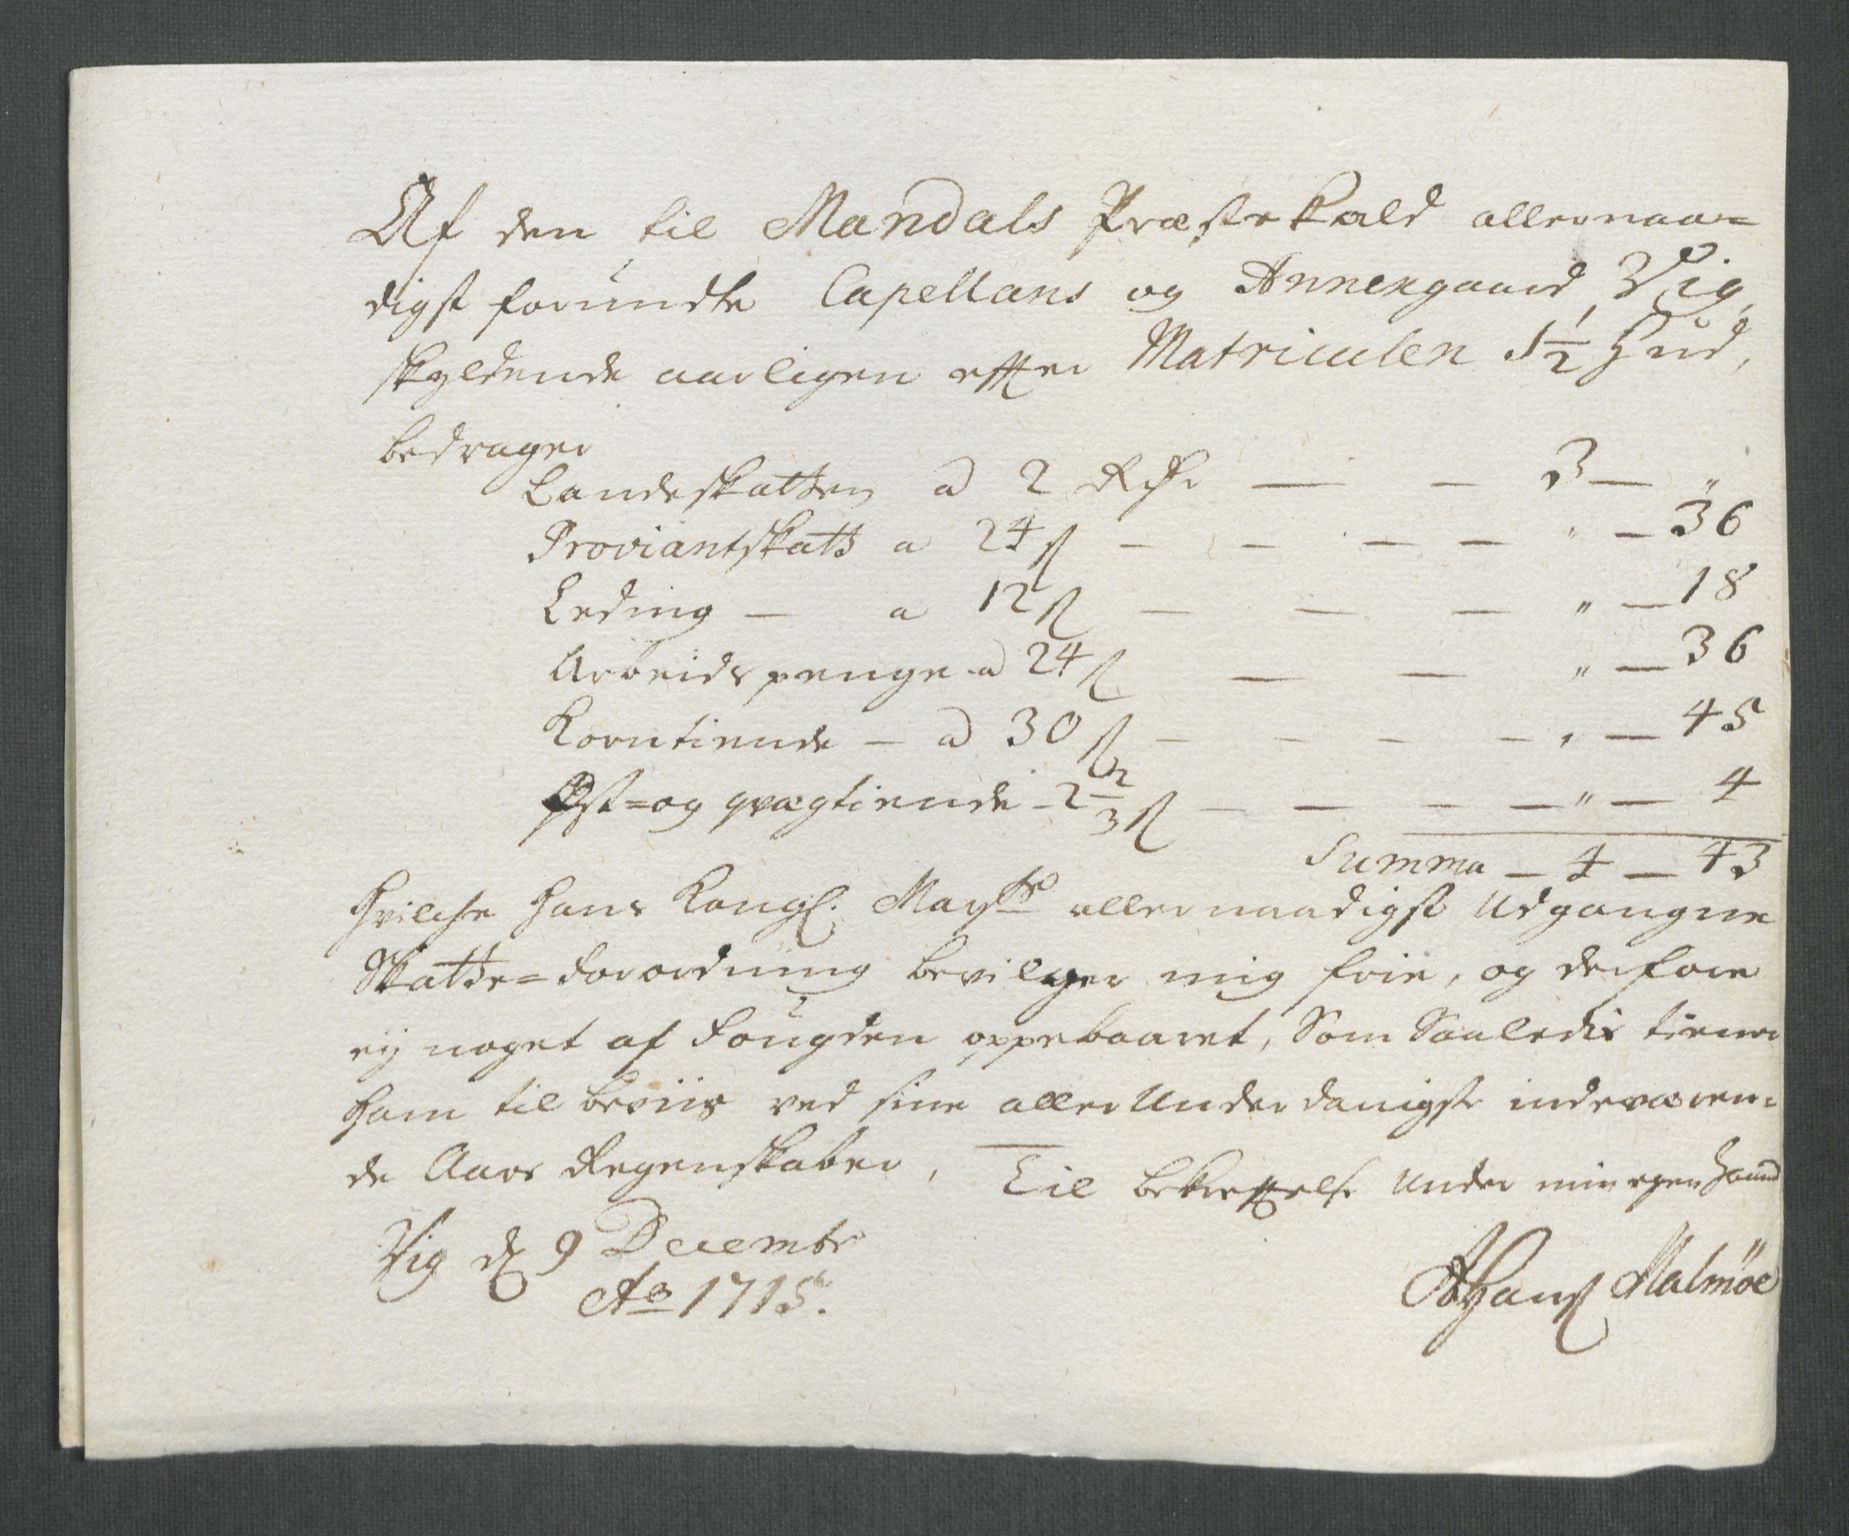 Af den til Mandals Præste Kald allernaa=
digst forundte Capellans og Annexgaard Vig,
skyldende aarligen effter Matriculen 1½ Hud,
bedrager
Landeskatten a 2 Rdr — — 3 — "
Proviantskatt a 24 ß — — — — " — 36
Leding — a 12 ß — — — " — 18
Arbeidspenge a 24 ß — — " — 36
Korntiende — a 30 ß — — — — " — 45
Ost= og qvægtiende - 2 2/3 ß — — — — " — 4
Summa — 4 — 43
Hvilche Hans Kongl. Mayts allernaadigst Udgangne
Skatte=Forordning bevilger mig frie, og derfore
ey noget af Fougden oppebaaret, Som Saaledis tiener
ham til beviis ved sine allerUnderdanigste indeværen=
de Aars Regenskaber, Til bekrefftelse Under min egen Haand
Vig d 9 Decembr
Ao 1715.
Hanß Malmöe